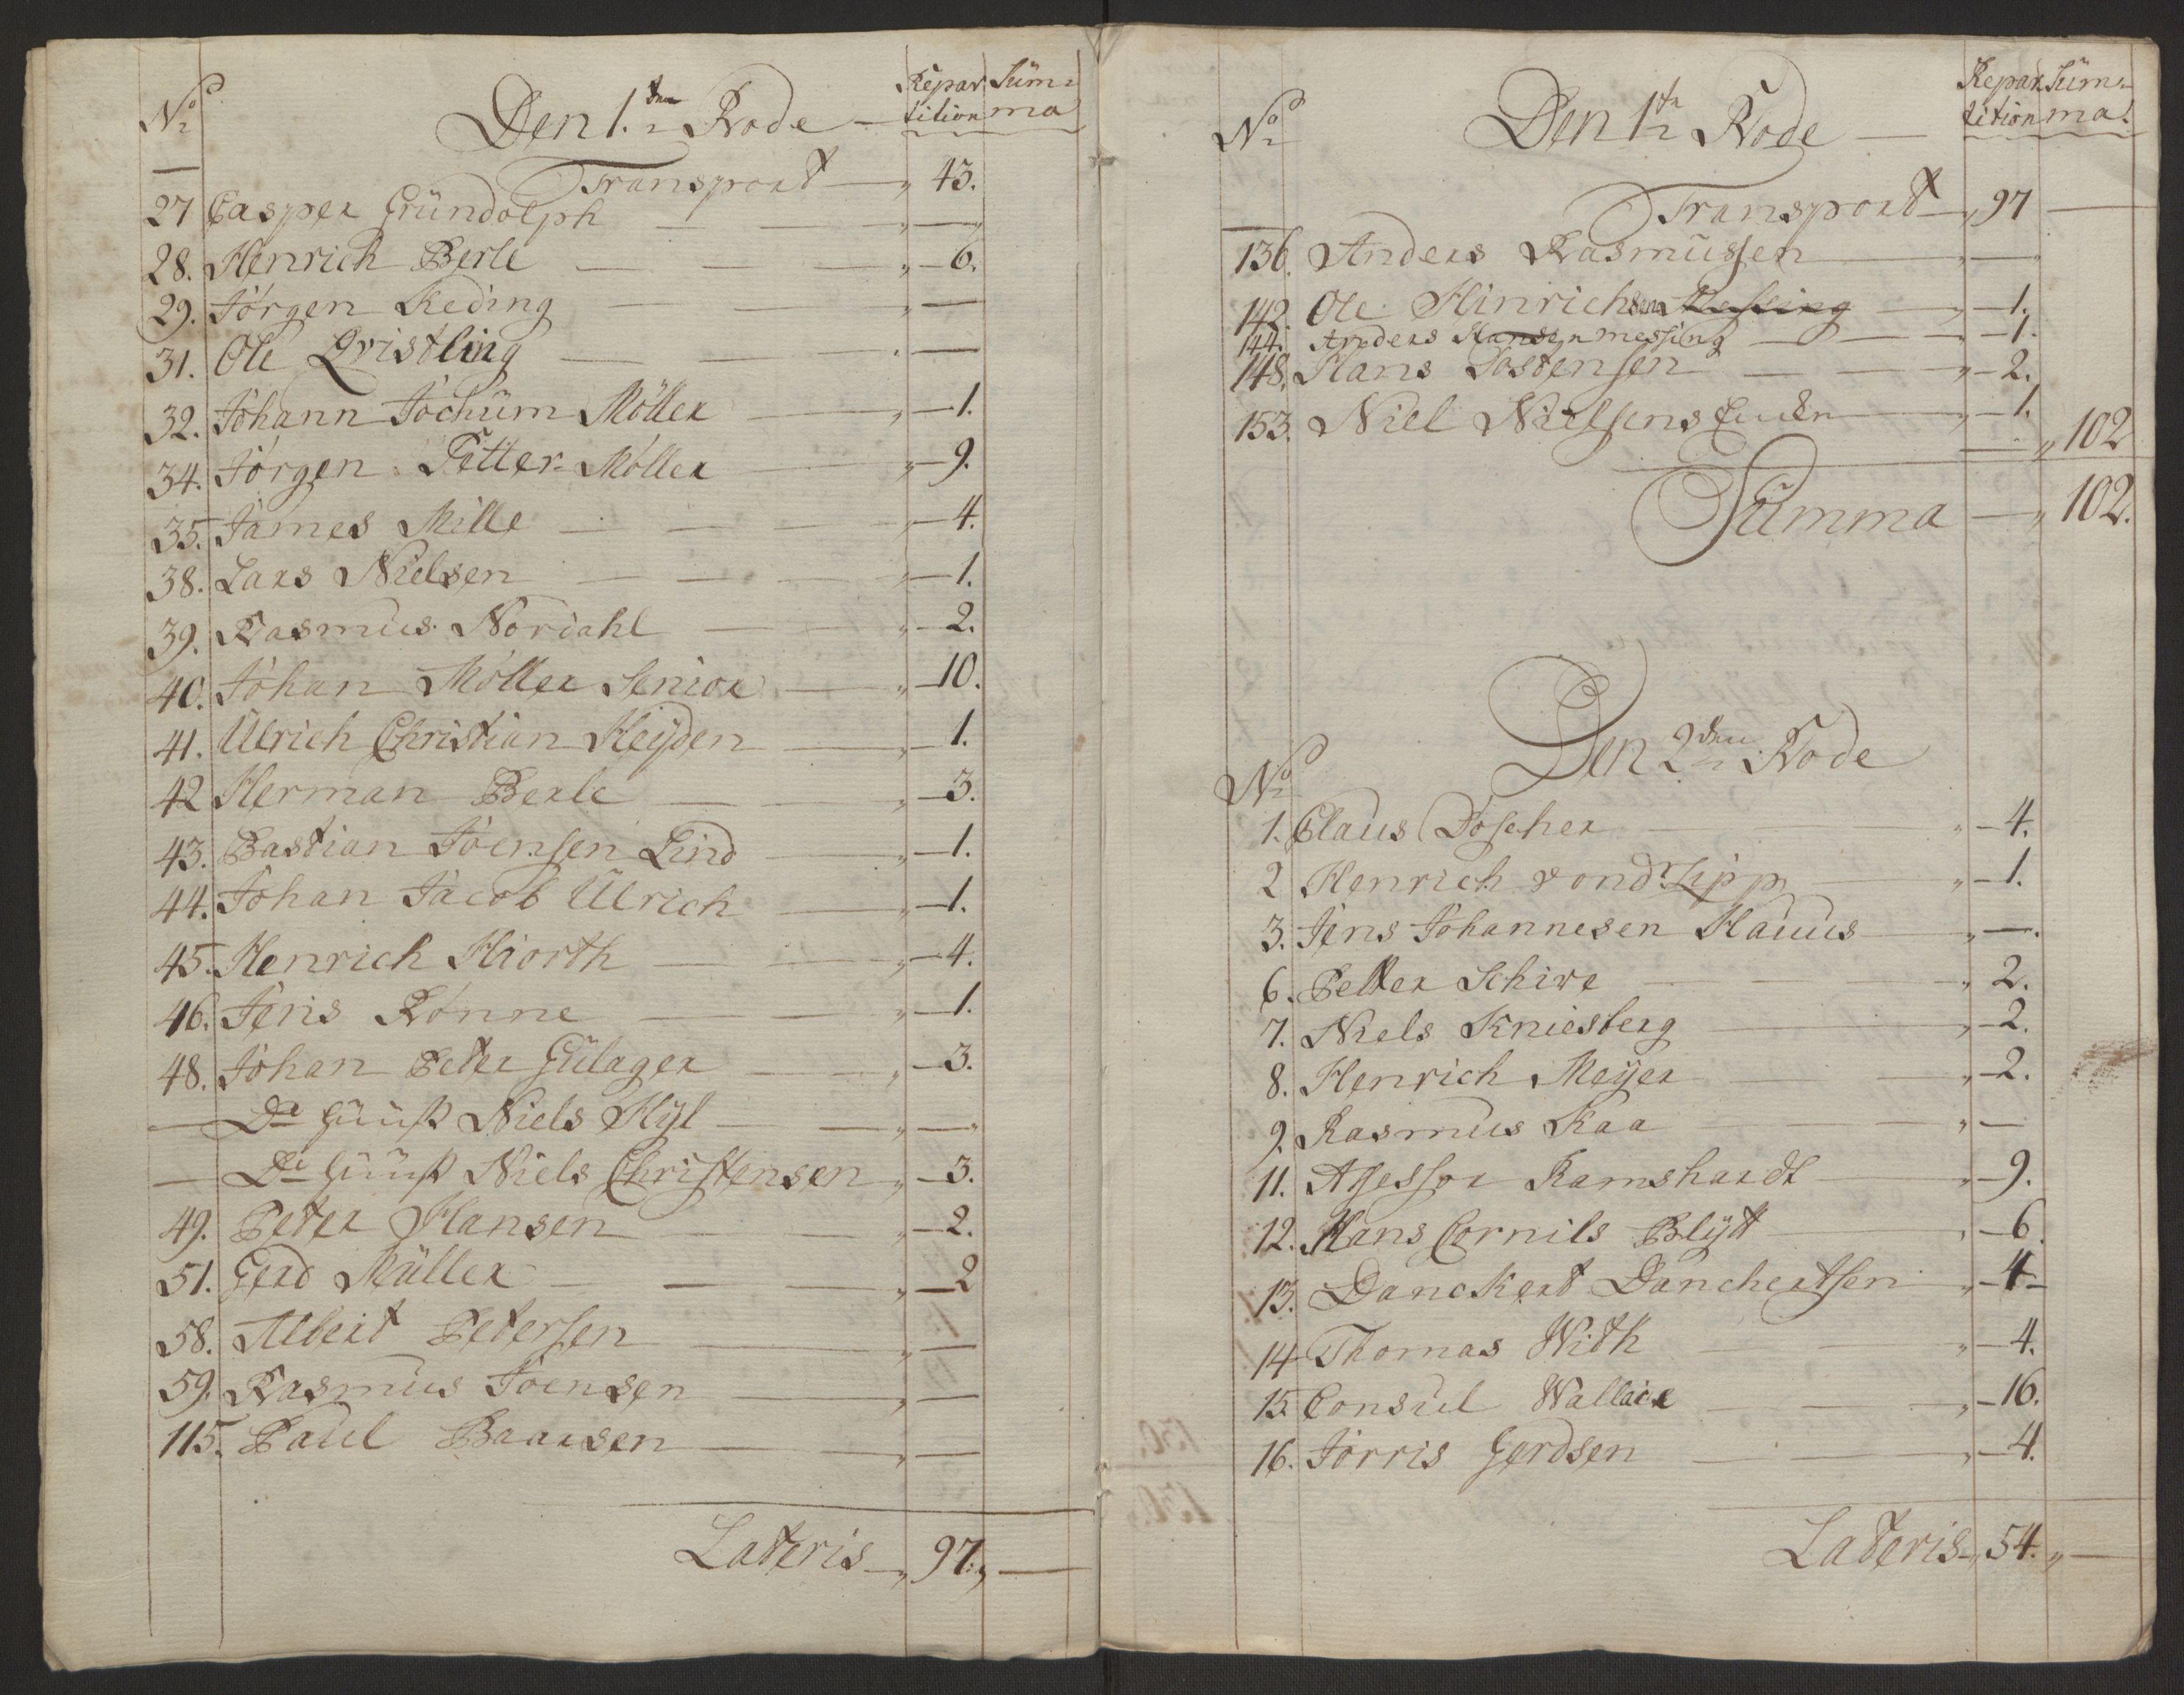 No Den 1.ten Rode Repar Süm=
tition ma
Transport 43.
27 Casper Gründolph —
28. Henrich Berle 6.
29. Jörgen Reding —
31. Ole Qvistling —
32. Johann Jochüm Möller 1.
34. Jörgen Petter Möller 9.
35. James Mille 4.
38. Lars Nielsen 1.
39. Rasmus Nordahl 2.
40. Johan Möller Senior 10.
41. Ulrich Christian Heÿden 1.
42 Herman Berle 3.
43. Bastian Joensen Lind 1.
44. Johan Jacob Ulrich 1.
45. Henrich Hiorth 4.
46. Jens Rönne 1.
48. Johan Peter Gülager 3.
— Do Niels Hÿl —
— Do Niels Christensen 3.
49. Peter Hansen 2.
51. Gerd Müller 2
58. Albert Petersen —
59. Rasmus Joensen —
115. Paul Baarsen —
Lateris 97. —
No Den 1te Rode Repar Süm=
tition ma.
Transport 97 —
136. Anders Rasmussen —
142. Ole Hinrichsen 1.
144. Anders Hansen Messing 1.
148. Hans Tostensen 2.
153. Niel Nielsens Encken 1.
102
Summa 102.
No Den 2den Rode
1. Claus Döscher 4.
2 Henrich vond Lipp 1.
3. Jens Johannesen Hauus —
6. Petter Schive 2.
7. Niels Kniesberg 2.
8. Henrich Meÿer 2.
9. Rasmus Kaa —
11. Assessor Ramshardt 9.
12. Hans Cornils Blÿtt 6.
13. Danckert Danchertsen 4
14 Thomas With 4.
15. Consul Wallace 16.
16. Jorris Gerdsen 4.
Lateris 54. —